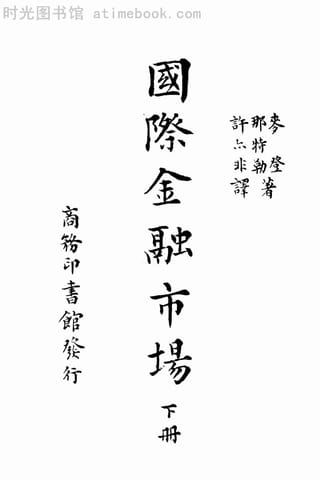 时光图书馆 atimebook.com
麥登
那特勒著
許亦非譯
國際金融市場 下冊
商務印書館發行